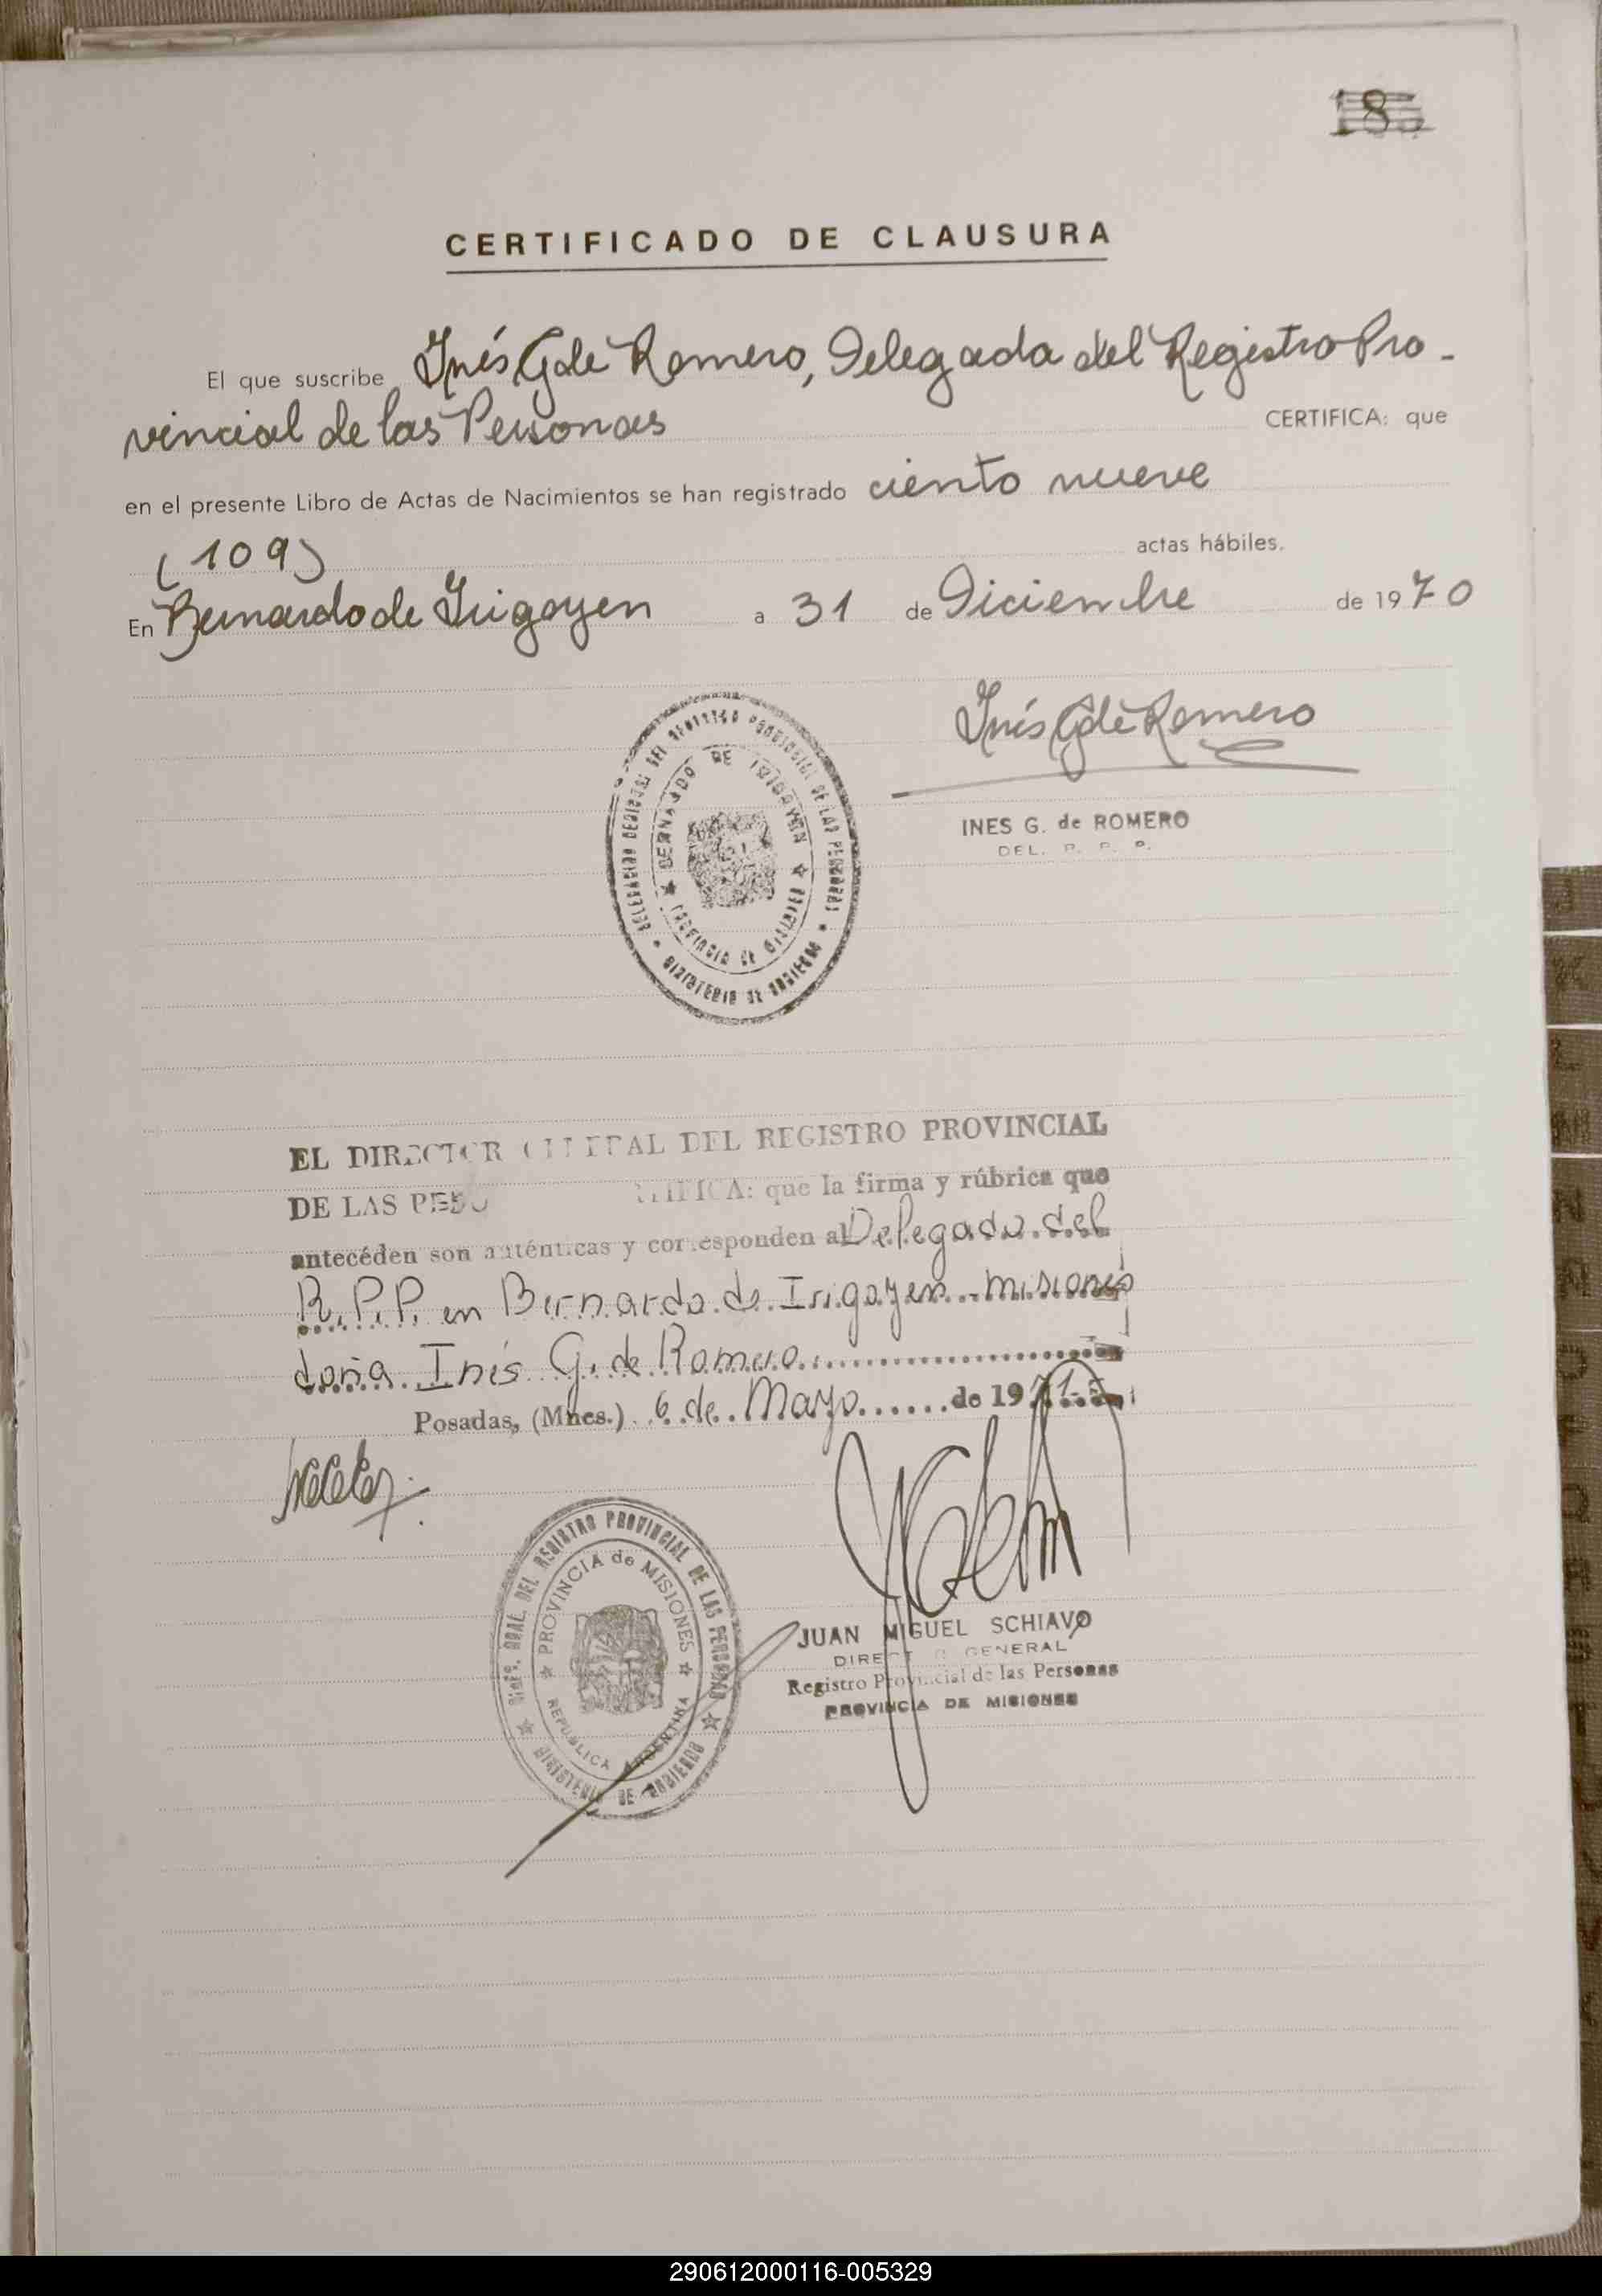 CERTIFICADO DE CLAUSURA
El que suscribe Inés G de Romero, Delegada del Registro Pro-
vincial de las Personas CERTIFICA: que
en el presente Libro de Actas de Nacimientos se han registrado ciento nueve
(109) actas hábiles.
En Bernardo de Irigoyen a 31 de Diciembre de 1970
Inés G de Romero
INES G. de ROMERO
DEL. R. P. P.
DEL REGISTRO PROVINCIAL DE LAS PERSONAS
MINISTERIO DE GOBIERNO
BERNARDO DE IRIGOYEN
PROVINCIA DE MISIONES
EL DIRECTOR GENERAL DEL REGISTRO PROVINCIAL
DE LAS PERSO CERTIFICA: que la firma y rúbrica que
antecéden son auténticas y corresponden al Delegado del
R.P.P. en Bernardo de Irigoyen - Misiones
doña Inés G. de Romero
Posadas, (Mnes.) 6 de Mayo de 1971
JUAN MIGUEL SCHIAVO
DIRECTOR GENERAL
Registro Provincial de las Personas
PROVINCIA DE MISIONES
GRAL. DEL REGISTRO PROVINCIAL DE LAS PERSONAS
MINISTERIO DE GOBIERNO
PROVINCIA de MISIONES
REPUBLICA ARGENTINA
290612000116-005329